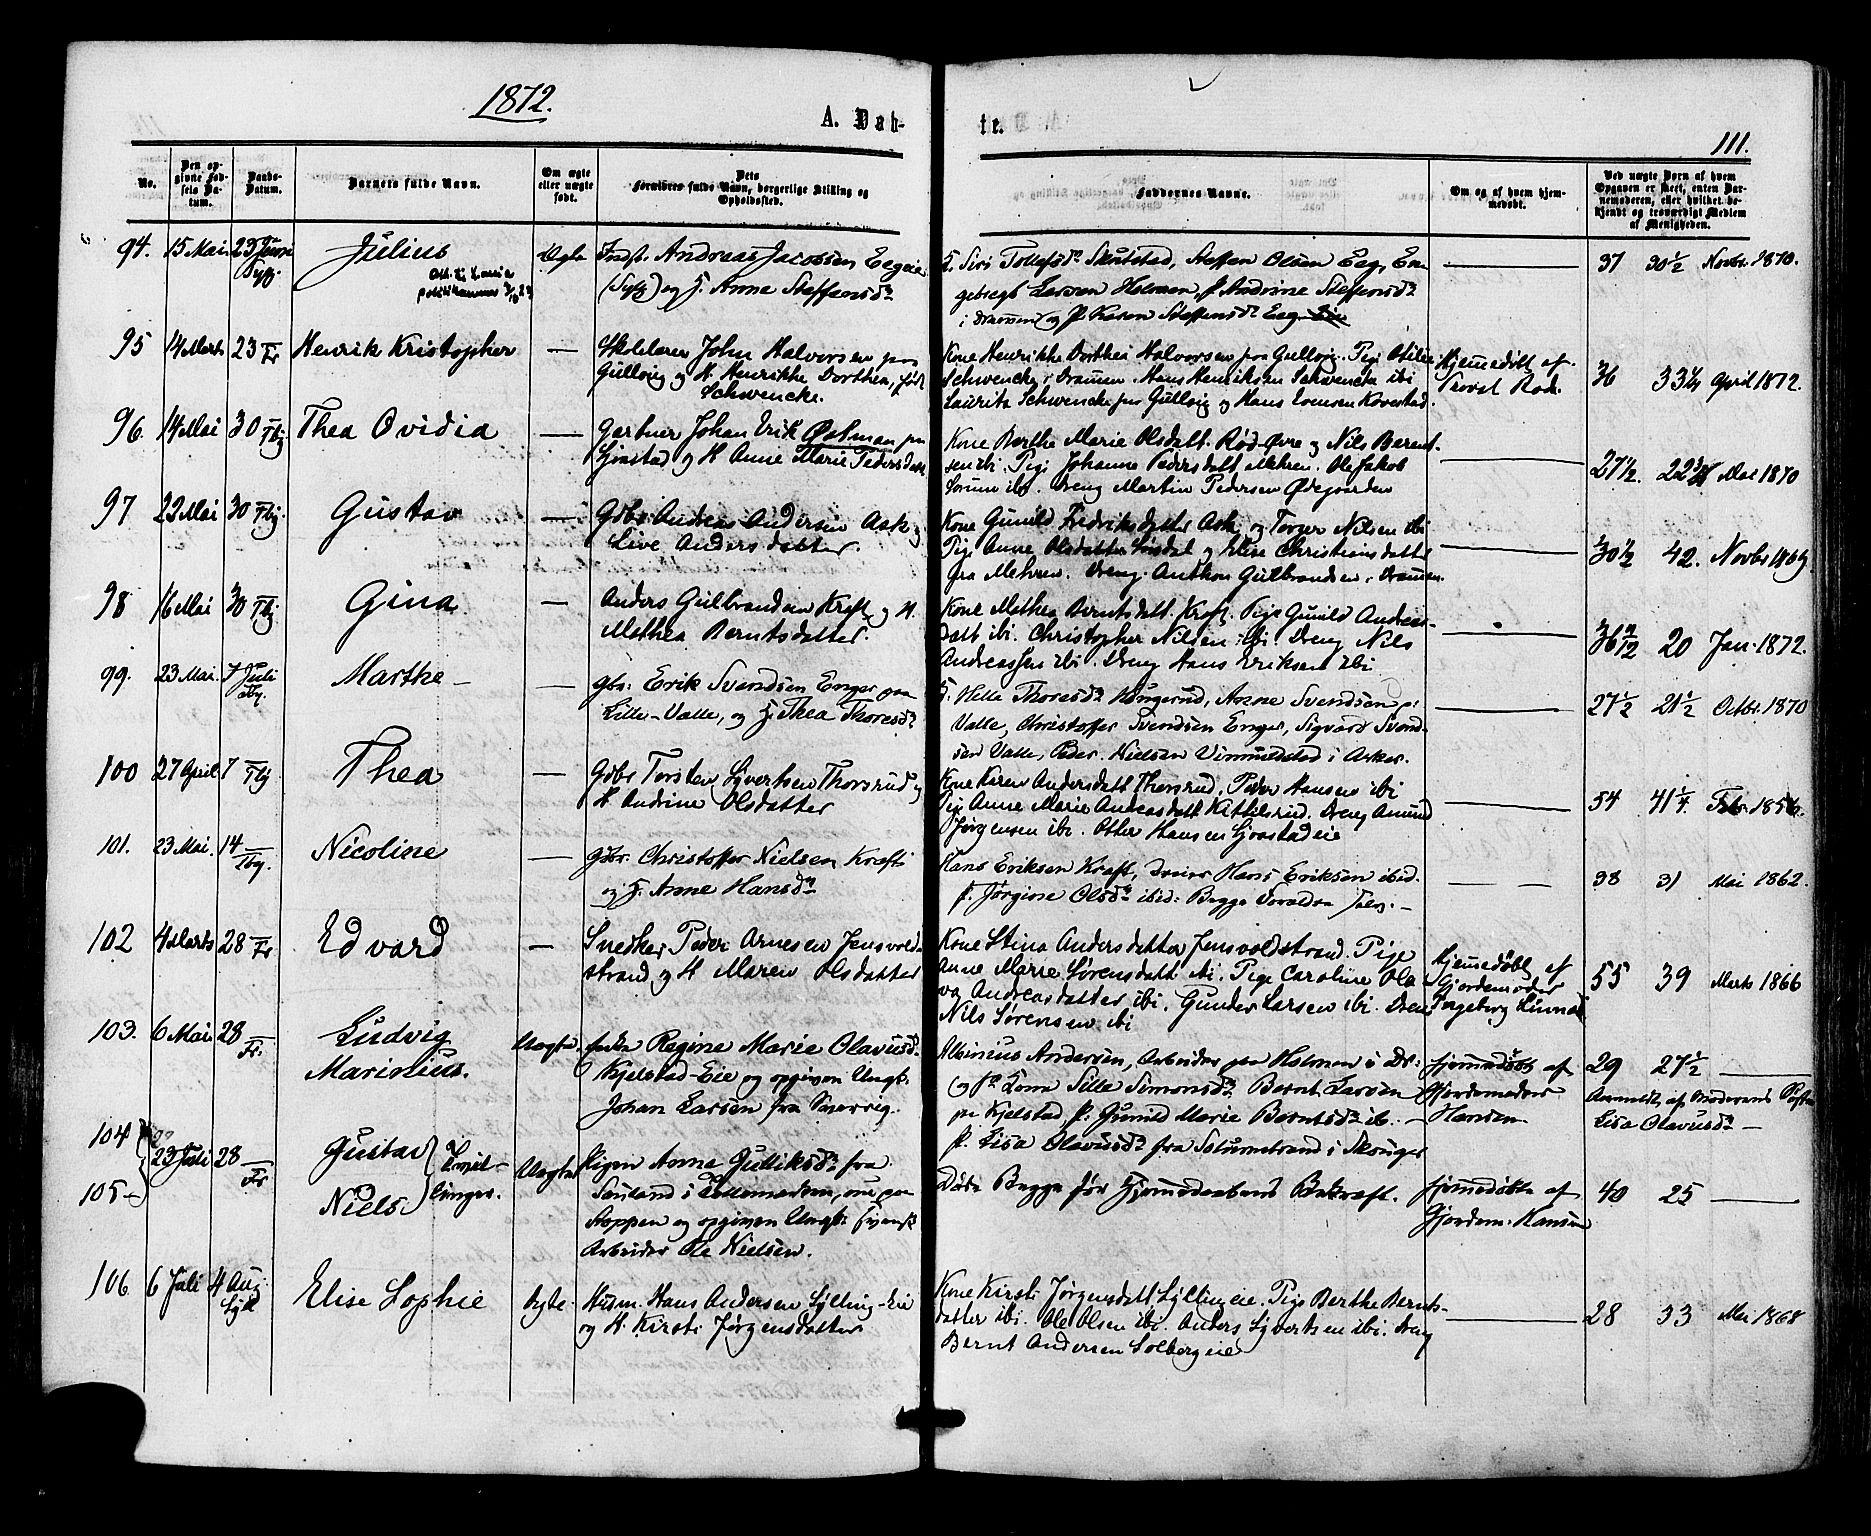 1872.
A. Dåb-
te.
111.
No.
Den opgivne Fødsels Datum.
Daabs-Datum.
Barnets fulde Navn.
Om ægte eller uægte født.
Dets Forældres fulde Navn, borgerlige Stilling og Opholdssted.
Faddernes Navne.
Om og af hvem hjemmedøbt.
Ved uægte Børn af hvem Opgaven er skeet, enten Barnemoderen, eller hvilket bekjendt og troværdigt Medlem af Menigheden.
94. 15 Mai 23 Juni Sylg. Julius Ægte Indst. Andreas Jacobsen Eegeie
(Sylg) og H. Anne Steffensd.
K. Siri Tollefsd. Skutstad, Steffen Olsen Eeg, En-
gebregt Larsen Holmen, P. Andrine Steffensd.
i Drammen og P. Karen Steffensd. Eeg
37 30½ Novbr. 1870.
95 14 Marts 23 Fr Henrik Kristopher — Skolelærer John Halvorsen paa
Gullaug og H. Henrikke Dorthea, født
Schwencke.
Kone Henrikke Dorthea Halvorsen paa Gullaug. Pige Otilie
Schwencke i Drammen. Hans Henriksen Schwencke ibi
Laurits Schwencke paa Gullaug og Hans Evensen Kovestad.
Hjemmedøbt af
36 33¼ April 1872.
96. 14 Mai 30 Tbg Thea Ovidia — Gartner Johan Erik Østman paa
Gjøstad og H. Anne Marie Pedersdatt.
Kone Berthe Marie Olsdatt. Rød-Øvre og Nils Berent-
sen ibi. Pige Johanne Pedersdatt. Mehren. Ole Jakob
Sørum ibi. Dreng Martin Pedersen Ødegaarden
27½. Mai 1870
97 22 Mai 30 Tbg. Gustav — Gdbr. Andreas Andersen Ask og
Live Andersdatter.
Kone Gunild Fredriksdatter Ask og Torger Nilsen ibi
Pige Anne Olsdatter Sørsdal og Elise Christiansdatter
fra Mehren. Dreng Anthon Gulbrandsen i Drammen.
30½ 42. Novbr 1869.
98 16 Mai 30 Tbg Gina — Anders Gulbrandsen Kraft og H.
Mathea Berntsdatter.
Kone Mathea Berntsdatt. Kraft. Pige Gunild Andreas-
datt ibi. Christopher Nilsen ibi. Dreng Nils
Andreassen ibi. Dreng Hans Eriksen ibi
20 Jan. 1872.
99. 23 Mai. 7 Juli Tbg. Marthe — Gbr. Erik Svendsen Enger paa
Lille-Valle, og H. Thea Thoresd.
K. Helle Thoresd. Haugerud, Anne Svendsen p.
Valle, Christoffer Svendsen Enger, Sigvard Svend-
sen Valle, Peder Nielsen Vimmelstad i Asker.
27½ 21½ Octbr. 1870
100 27 April 7 Tbg Thea — Gdbr Torsten Syvertsen Thorsrud og
H Andrine Olsdatter
Kone Karen Andersdatt Thorsrud, Peder Hansen ibi
Pige Anne Marie Andreasdatt Kittilsrud. Dreng Amund
Jørgensen ibi. Other Hansen Gjøstadeie
54 41¼
101. 23 Mai. 14 Tbg. Nicoline — Gdbr. Christoffer Nielsen Kraft
og H. Anne Hansd.
Hans Eriksen Kraft, Hans Eriksen ibid.
P. Jørgine Olsd. ibid.
38 31 Mai 1862.
102 4 Marts 28 Fr Edvard — Snedker Peder Arnesen Jensvold-
strand og H Maren Olsdatter
Kone Stina Andersdatter Jensvoldstrand. Pige
Anne Marie Sørensdatt ibi. Pige Caroline Ola-
va Andreasdatter ibi. Gunder Larsen ibi. Dreng
Nils Sørensen ibi
Hjemmedøbt af
Gjordemoder
Ingeborg
55 39 Marts 1866
103. 6 Mai 28 Fr. Ludvig
Marinius. Uægte. Enke Regine Marie Olavusd.
Kjelstad-Eie og opgiven Ungk.
Johan Larsen fra Sverrig.
Albinius Andersen, Arbeider paa Holmen i Dr.
og P. Kone Sille Simonsd. Bernt Larsen
paa Kjelstad, P. Gunild Marie Berntsd. ib. —
P. Lisa Olavusd. fra Solumstrand i Skouger
Hjemmedøbt af
Gjordemoder
Hansen
29 27½ —
Anmeldt af Moderens
Lisa Olavusd. —
104
105 23 Juli 28 Fr Gustav
Niels Tvil-
linger. Uægte Pigen Anne Gulliksd. fra
Sauland i Tellemarken, nu paa
Stoppen og opgiven Ungk. svensk
Arbeider Ole Nielsen.
Døde Begge før Hjemmedaabens Bekræft.
Hjemmedøbte af
Gjordem. Hansen
40 25 —
106 6 Juli 4 Aug. Sylg Elise Sophie Ægte. Husm. Hans Andersen Sylling-Eie
og H. Kirsti Jørgensdatter
Kone Kirsti Jørgensdatt Syllingeie. Pige Berthe Bernts-
datter ibi. Ole Olsen ibi. Anders Syvertsen ibi. Dreng
Bernt Andersen Solbergeie
28 33 Mai 1868